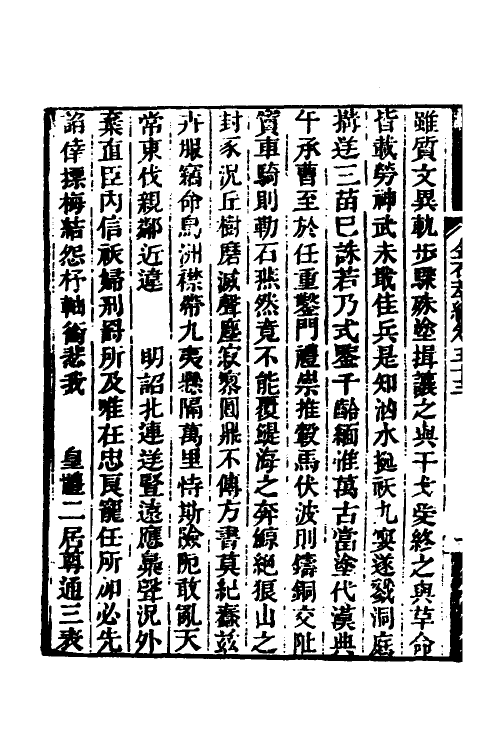 雖質文異軌步驟殊塗揖讓之與干戈受終之與革命
皆載勞神武未戢佳兵是知汹水挻祅九嬰遂戮洞庭
搆逆三苗已誅若乃式鑒千齡緬惟萬古當塗代漢典
午承曹至於任重鑿門禮崇推轂馬伏波則鑄銅交阯
竇車騎則勒石燕然竟不能覆鯷海之奔鯨絕狼山之
封豕況丘樹磨滅聲塵寂寥圓鼎不傳方書莫紀蠢茲
卉服竊命島洲襟帶九夷懸隔萬里恃斯險阨敢亂天
常東伐親鄰近違　明詔北連逆豎遠應梟聲況外
棄直臣內信祅婦刑罰所及唯在忠良寵任所加必先
諂倖摽梅結怨杼軸銜悲我　皇體二居尊通三表
金石萃編卷五十三